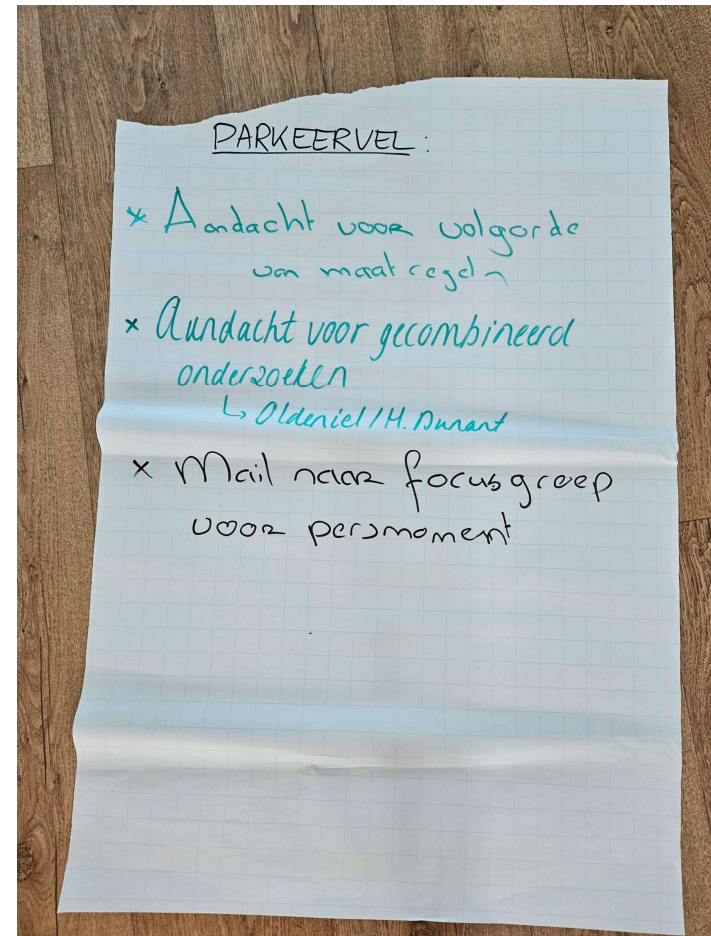 PARKEERVEL:
* Aandacht voor volgorde
van maatregeln
x Aandacht voor gecombineerd
onderzoeken
↳ Oldeniel/H. Dunant
x Mail naar focusgroep
voor persmoment